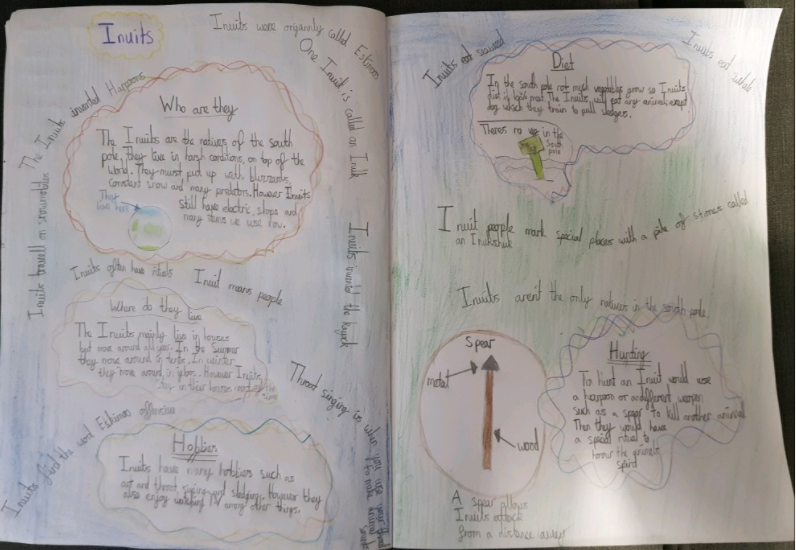 Inuits
Inuits were organnly called Eskimos
One Inuit is called an Inuk
The Inuits invented Harpoons
Who are they
The Inuits are the natives of the south
pole, they live in harsh conditions on top of the
world. They must put up with blizzards,
constant snow and many predators. However Inuits
still have electric, shops and
many items we use now.
They
live here
Inuits travell on snowmobiles
Inuits invented the kayack
Inuits often have rituals
Inuit means people
Where do they live
The Inuits mainly live in houses
but move around all year. In the Summer
they move around in tents. In winter
they move around in igloos. However Inuits
stay in their houses most of the
time
Throat singing is when you use your
Inuits find the word Eskimos offensive
Hobbies
Inuits have many hobbies such as
art and throat singing and sledging. However they
also enjoy watching TV among other things.
Inuits eat seaweed
Inuits eat whale
Diet
In the south pole not much vegetables grow so Inuits
diet is just meat. The Inuits will eat any animal except
dog which they train to pull sledges.
Theres no veg in the
South
pole
Inuit people mark special places with a pile of stones called
an Inukshuk
Inuits aren't the only natives in the south pole.
Spear
metal
wood
A spear allows
Inuits attack
from a distance away
Hunting
To hunt an Inuit would use
a harpoon or a different weapon
such as a spear to kill another animal.
Then they would have
a special ritual to
honour the animals
spirit